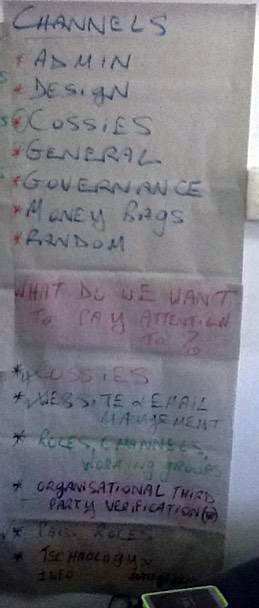 CHANNELS
* ADMIN
* DESIGN
* COSSIES
* GENERAL
* GOVERNANCE
* MONEY BAGS
* RANDOM
WHAT DO WE WANT
TO PAY ATTENTION
TO?
* COSSIES
* WEBSITE & EMAIL
MANAGEMENT
* ROLES, CHANNELS,
WORKING GROUPS
* ORGANISATIONAL THIRD
PARTY VERIFICATION
* PAID ROLES
* TECHNOLOGY
INFO